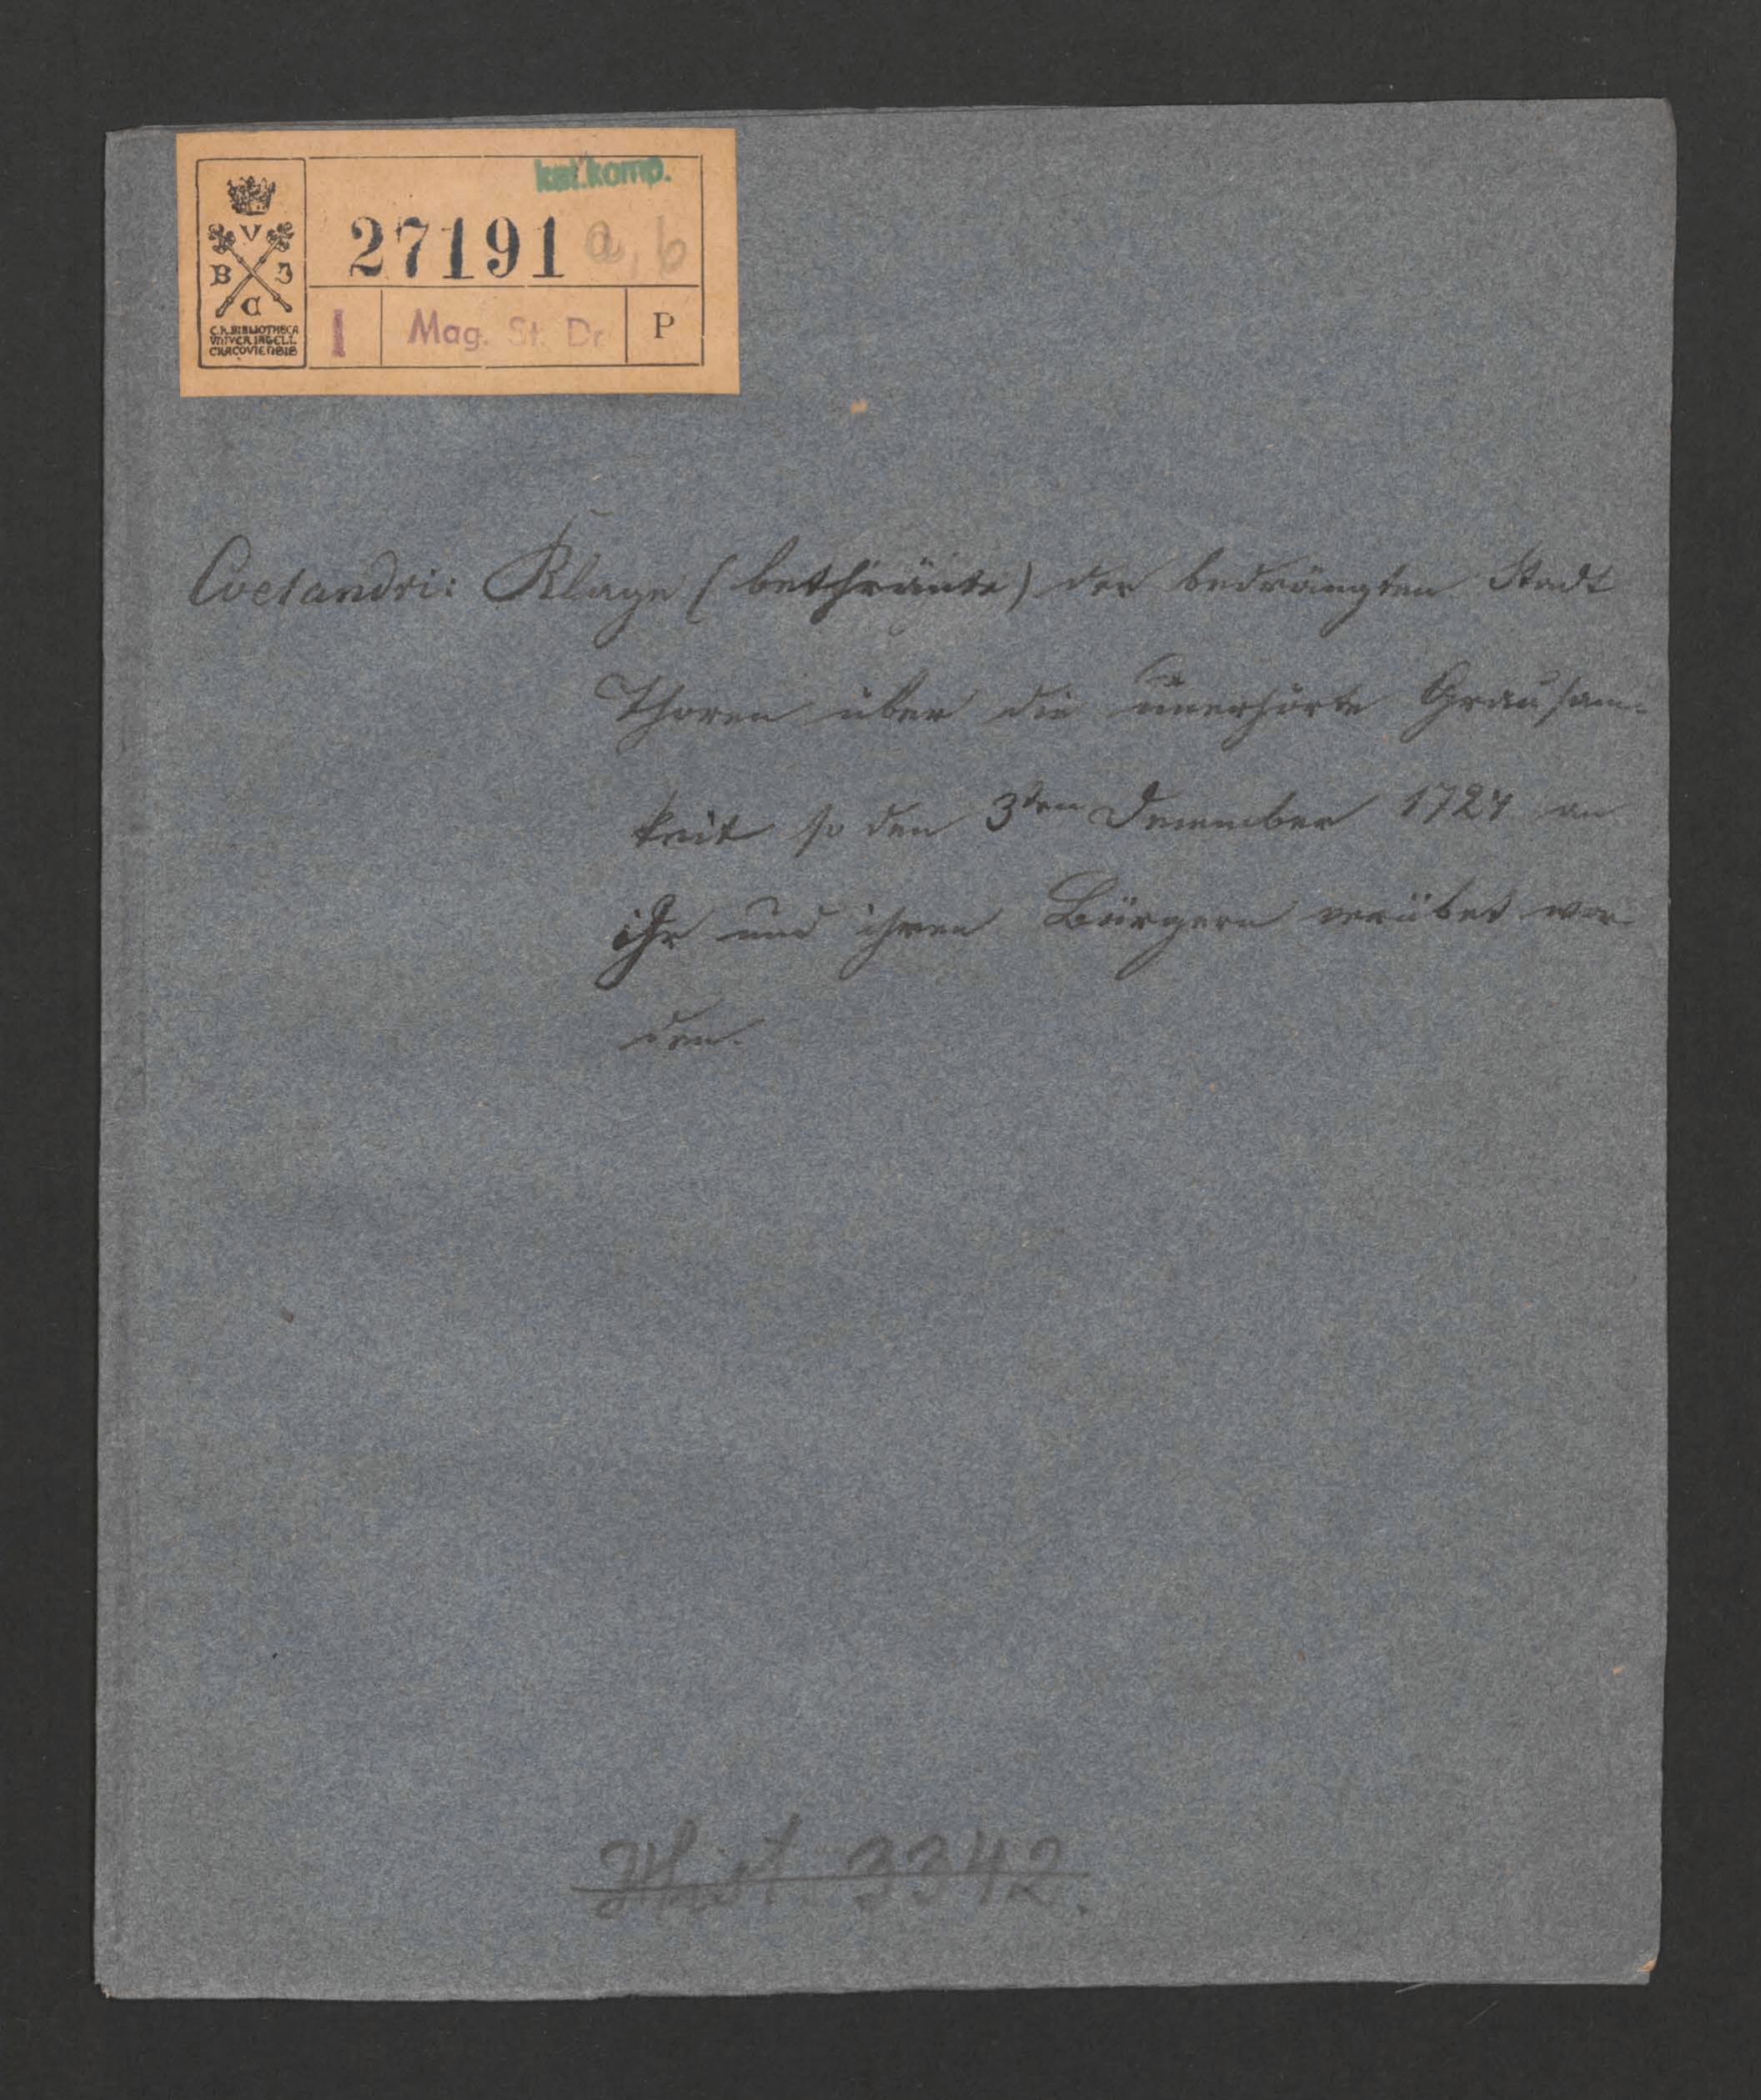 kat.komp.
V
B J
C
27191 a, b
C.K. BIBLIOTHECA
VNIVER. IAGELL.
CRACOVIENSIS
I Mag. St. Dr. P
Evetandri: Klage (bethränte) der bedrängten Stadt
Thoren über die unerhörte Grausam-
keit so den 3ten December 1724 an
ihr und ihren Bürgern verübet wor
den.
Hist. 3342.